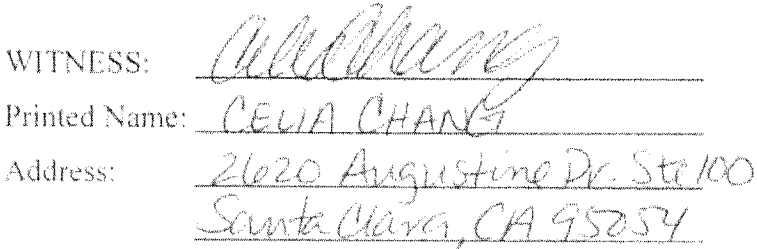 WITNESS: Celia Chang
Printed Name: CELIA CHANG
Address: 2620 Augustine Dr. Ste 100
Santa Clara, CA 95054